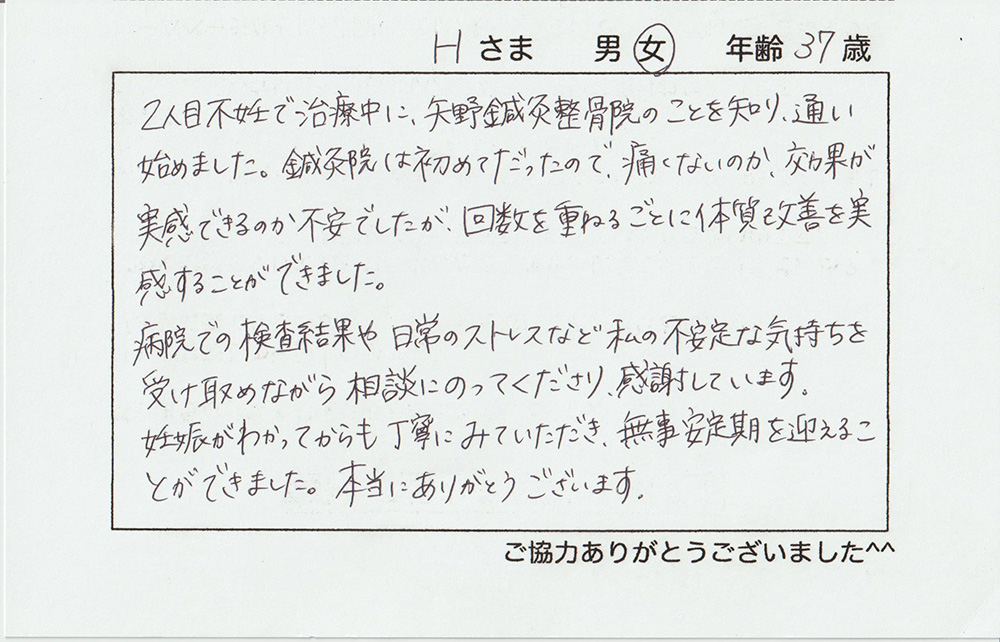 Hさま 男 女 年齢 37 歳
2人目不妊で治療中に、矢野鍼灸整骨院のことを知り、通い
始めました。鍼灸院は初めてだったので、痛くないのか、効果が
実感できるのか不安でしたが、回数を重ねるごとに体質改善を実
感することができました。
病院での検査結果や日常のストレスなど私の不安定な気持ちを
受け取めながら相談にのってくださり、感謝しています。
妊娠がわかってからも丁寧にみていただき、無事安定期を迎えるこ
とができました。本当にありがとうございます。
ご協力ありがとうございました^^